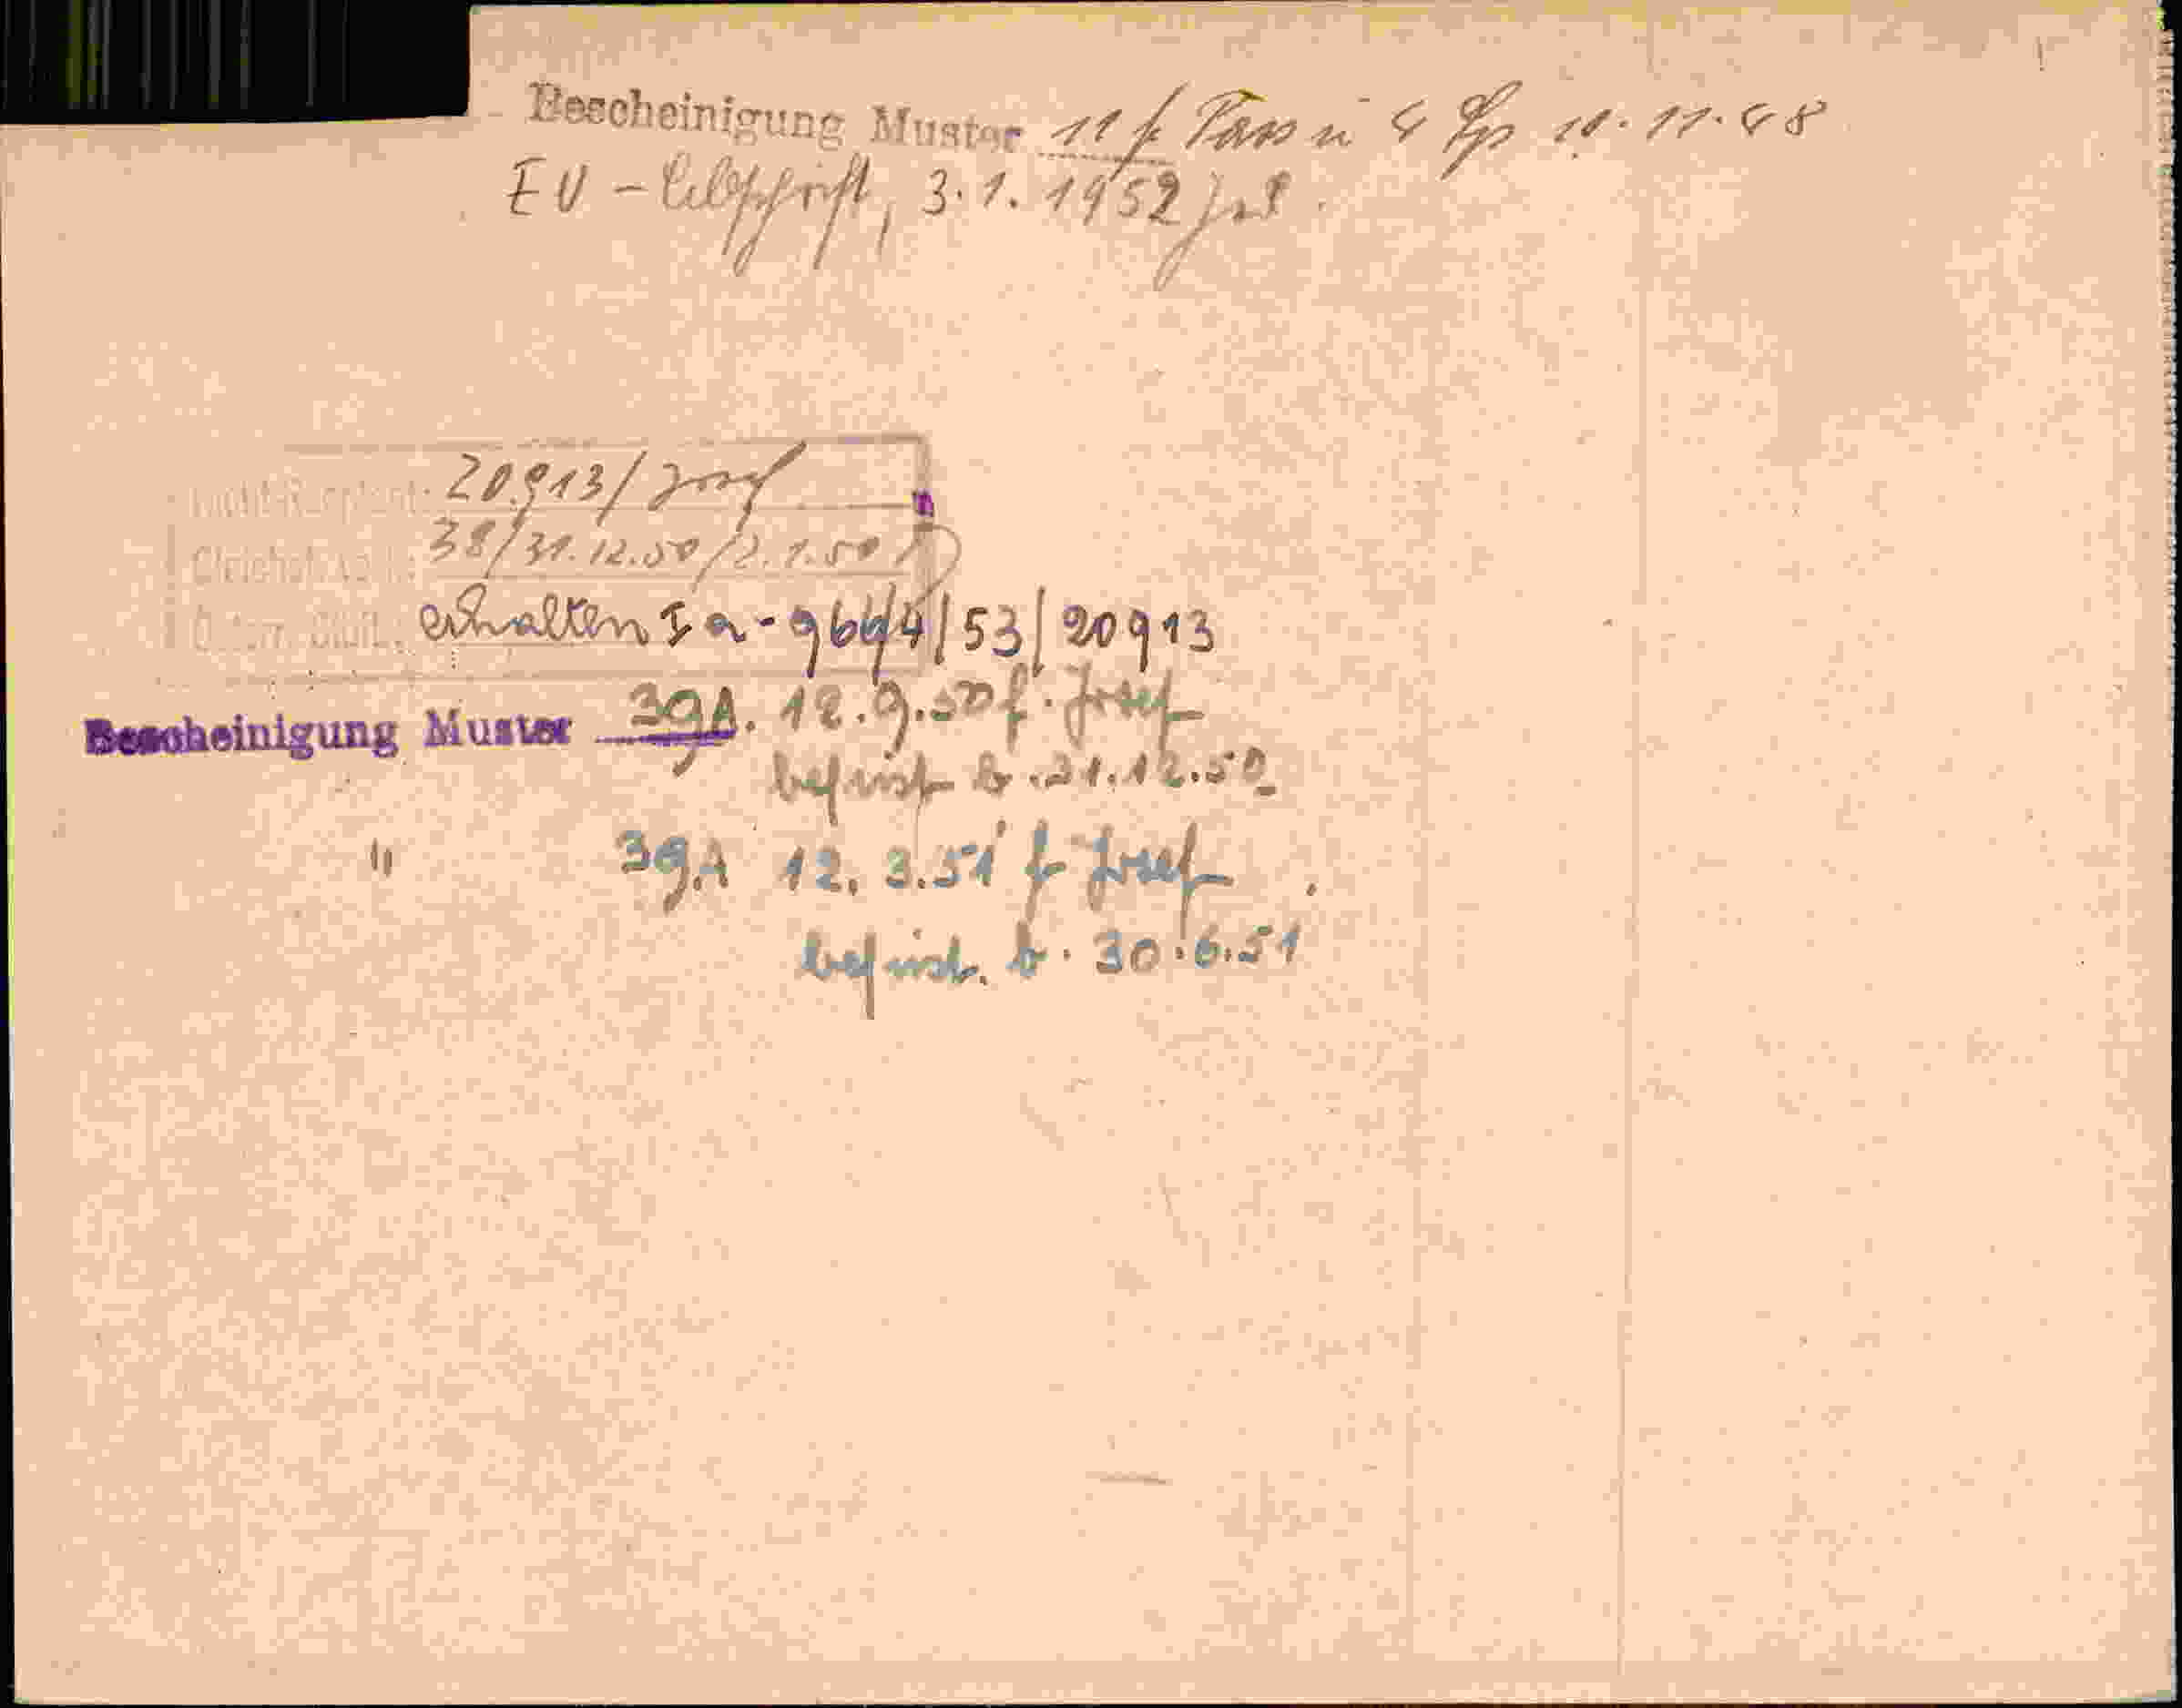 Bescheinigung Muster 11 f. Pass u 4 10.11.48
EU - Abschrift, 3.1.1952
20.913/Josef
38/31.12.50/2.1.50
erhalten I a - 9664/53/20913
Bescheinigung Muster 39A. 12.9.50 f. Josef
befrist b. 31.12.50
" 39A 12.3.51 f Josef
befrist. b. 30.6.51